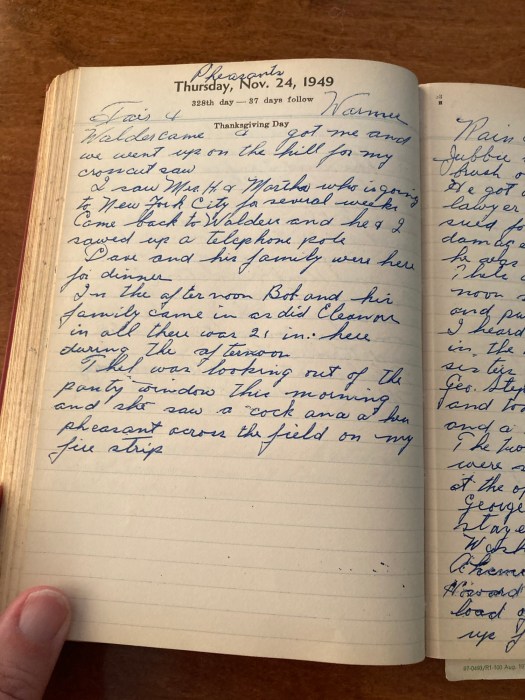 Pheasants
Thursday, Nov. 24, 1949
328th day — 37 days follow
Fair & Warmer
Thanksgiving Day
Walder came & got me and
we went up on the hill for my
croscut saw
I saw Mrs H & Martha who is going
to New York City for several weeks
Came back to Walders and he & I
sawed up a telephone pole
Dave and his family were here
for dinner
In the afternoon Bob and his
family came in as did Eleanor
in all there was 21 in: here
during the afternoon
Thel was looking out of the
panty window this morning
and she saw a cock and a hen
pheasant across the field on my
fire strip
Rain
Jubbu
brush
He got
lawyer
sued fo
damag
he was
noon
and pu
I heard
in the
sister
Geo. Step
and to
and a
The two
were s
at the o
George
staye
Wash
Howard
load o
up